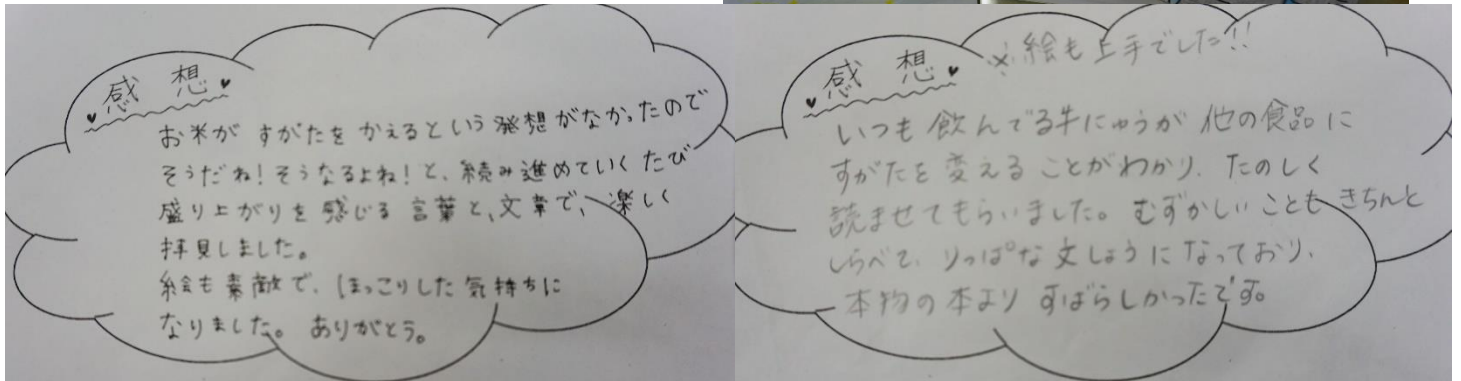 感想
お米が すがたを かえるという 発想がなかったので
そうだね！そうなるよね！と、続み進めていくたび
盛り上がりを感じる 言葉と、文章で、楽しく
拝見しました。
絵も素敵で、ほっこりした気持ちに
なりました。 ありがとう。
感想
※絵も上手でした!!
いつも飲んでる牛にゅうが 他の食品に
すがたを変える ことがわかり、たのしく
読ませてもらいました。むずかしいことも きちんと
しらべて、りっぱな文しょうになっており、
本物の本より すばらしかったです。